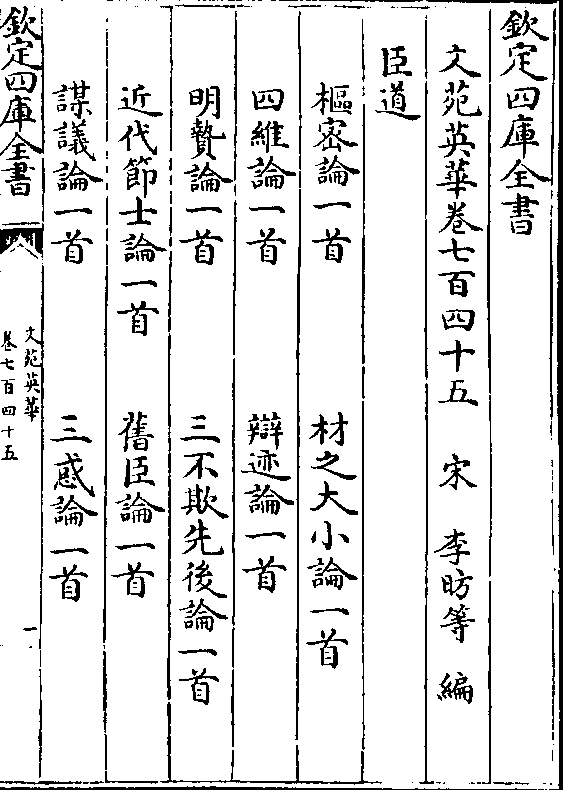 欽定四庫全書
文苑英華卷七百四十五 宋 李昉等 編
臣道
樞密論一首 材之大小論一首
四維論一首 辯迹論一首
明贄論一首 三不欺先後論一首
近代節士論一首 舊臣論一首
謀議論一首 三惑論一首
欽定四庫全書
文苑英華
卷七百四十五
一